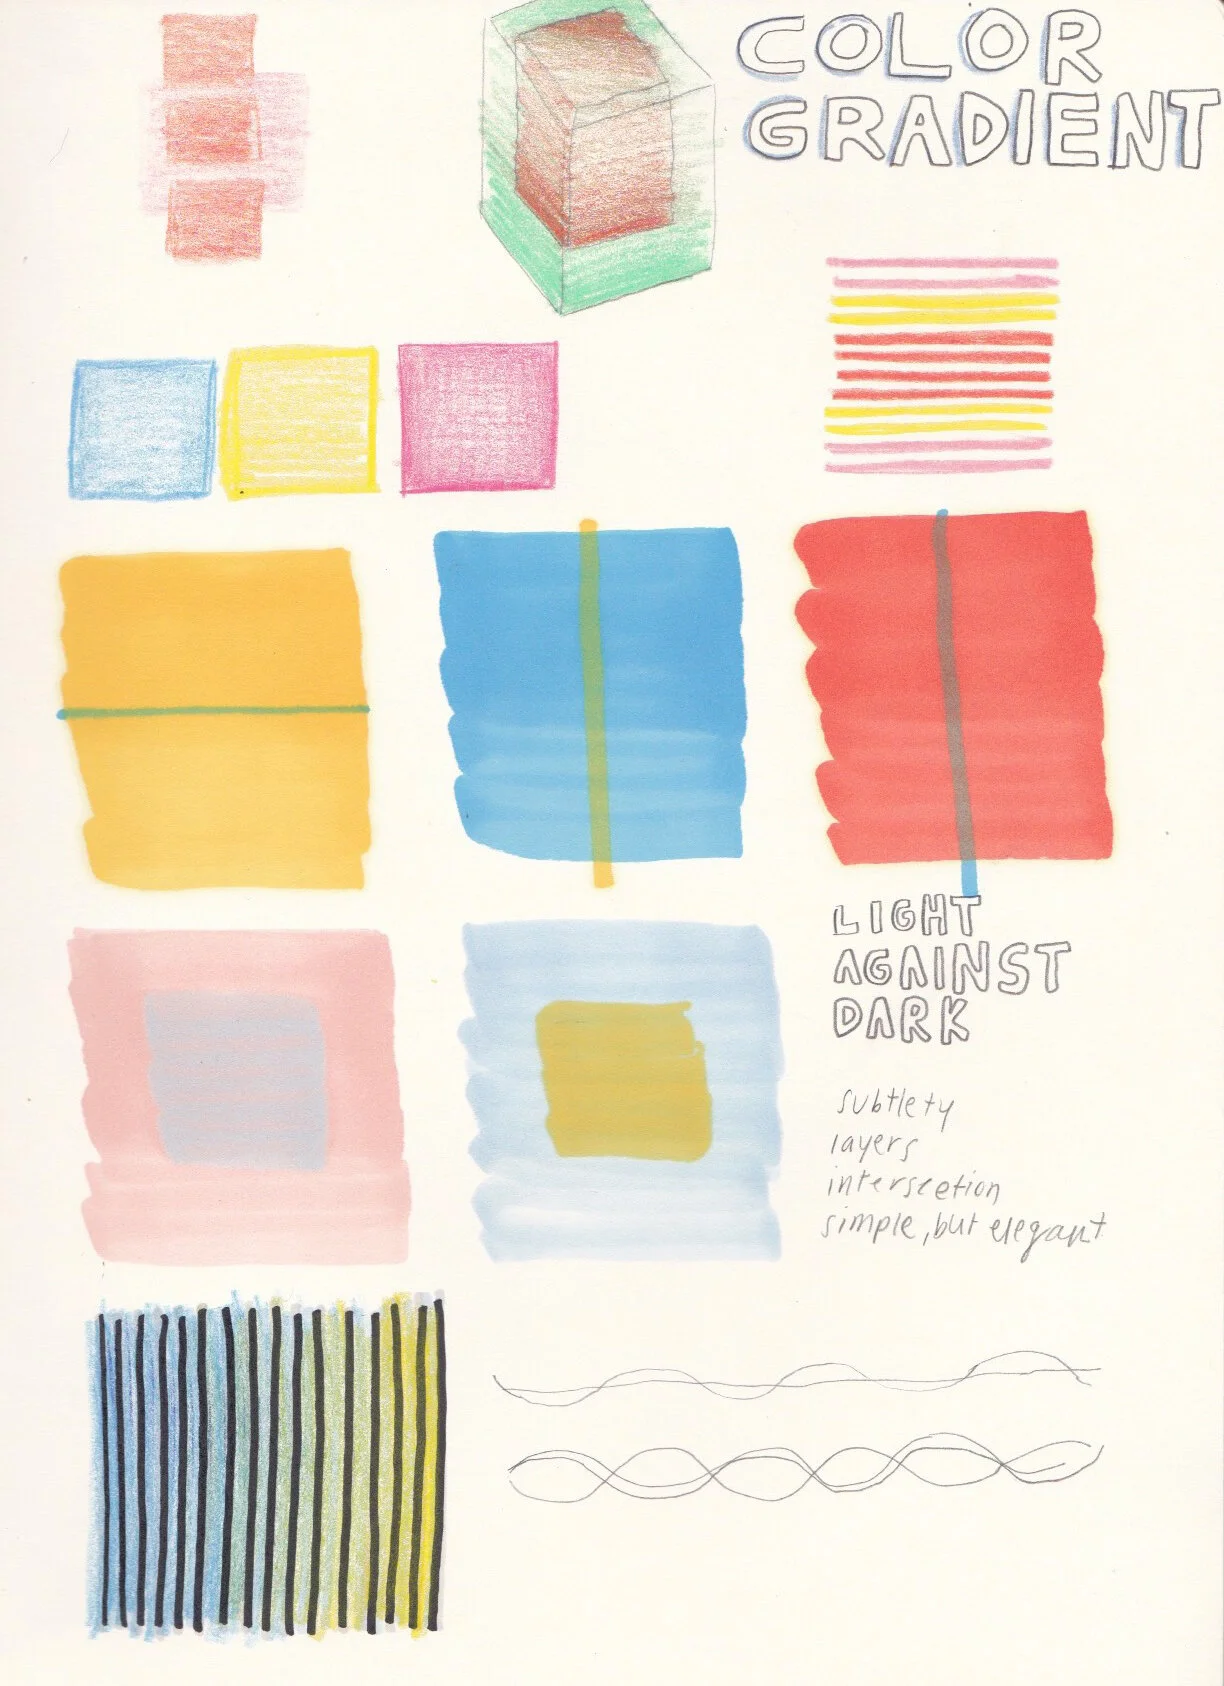 COLOR
GRADIENT
LIGHT
AGAINST
DARK
subtlety
layers
intersection
simple, but elegant